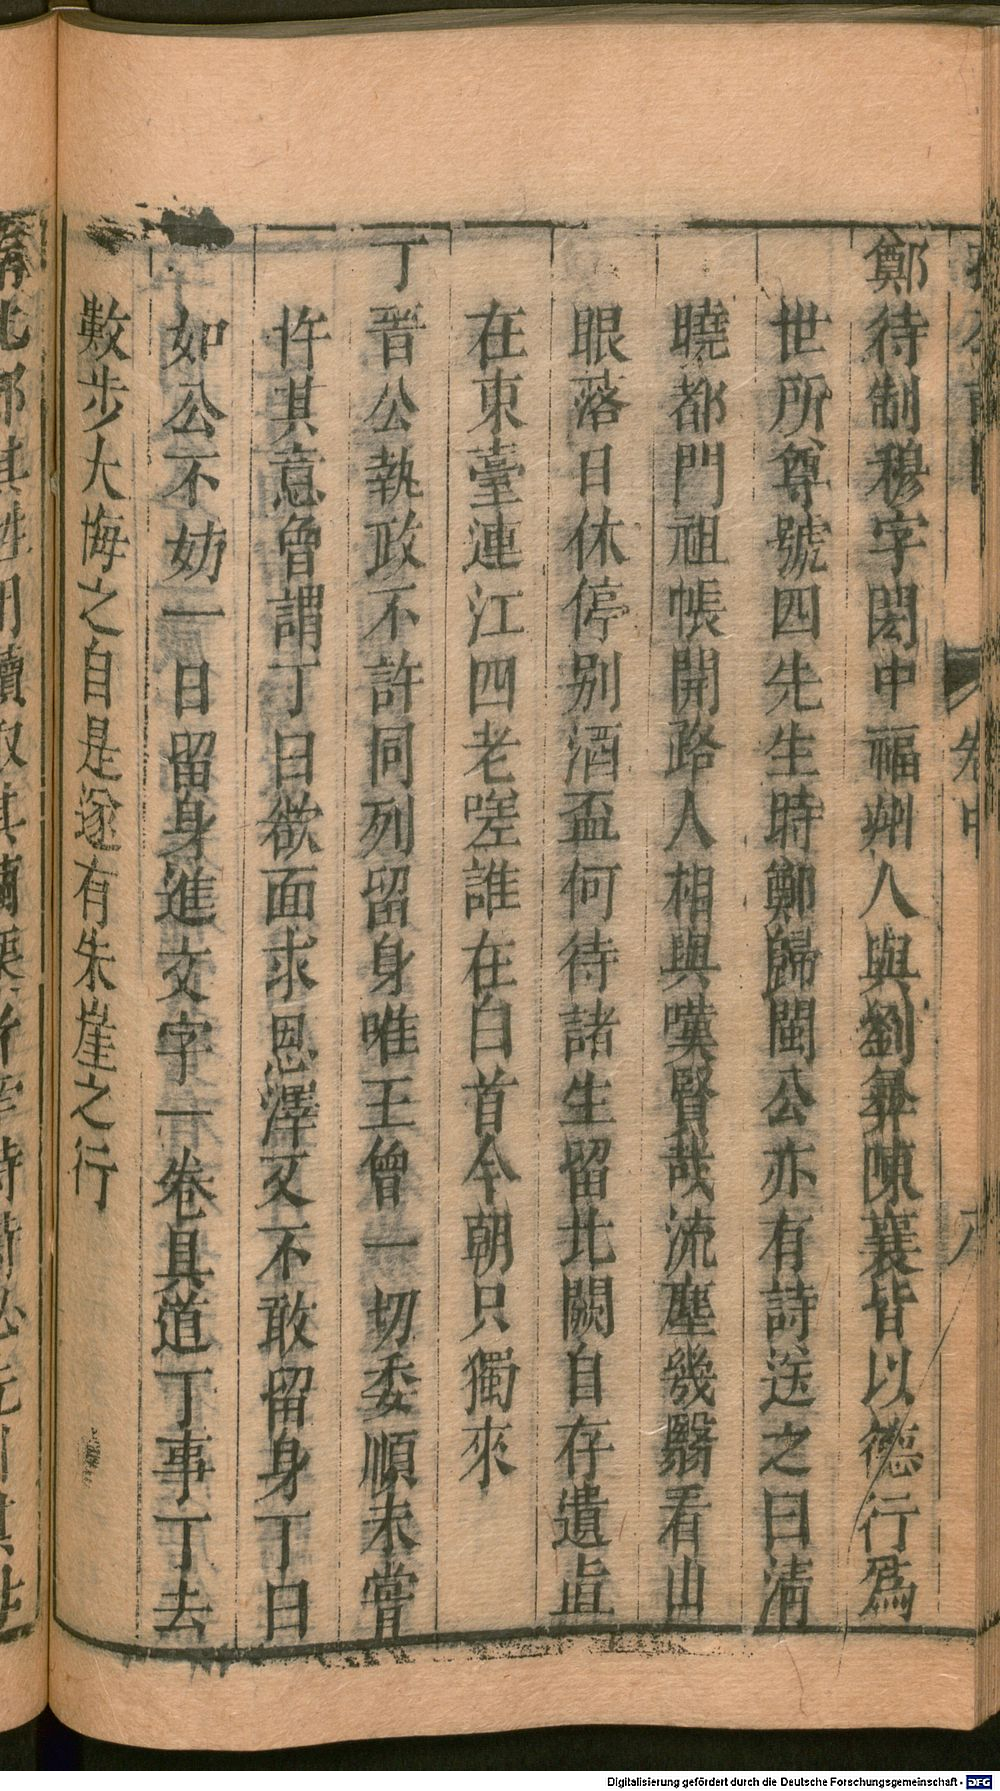 鄭待制穆字閎中福州人與劉彝陳襄皆以德行爲
世所尊號四先生時鄭歸閩公亦有詩送之曰清
曉都門祖帳開路人相與嘆賢哉流塵幾翳看山
眼落日休停别酒盃何待諸生留北闕自存遺直
在東臺連江四老嗟誰在白首今朝只獨來
丁晉公執政不許同列留身唯王曾一切委順未嘗
忤其意曾謂丁曰欲面求恩澤又不敢留身丁曰
如公不妨一日留身進文字一卷具道丁事丁去
數步大悔之自是遂有朱崖之行
卷中
Digitalisierung gefördert durch die Deutsche Forschungsgemeinschaft - DFG